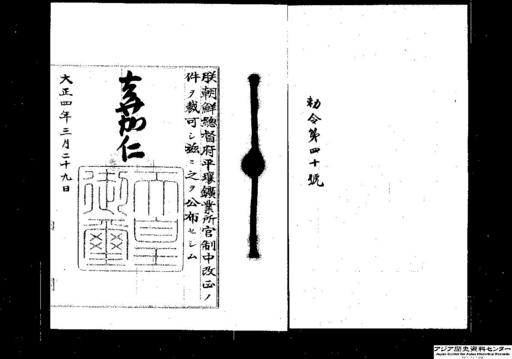 勅令第四十號
朕朝鮮總督府平壤鑛業所官制中改正ノ
件ヲ裁可シ玆ニ之ヲ公布セシム
嘉仁
天皇
御璽
大正四年三月二十九日
アジア歴史資料センター
Japan Center for Asian Historical Records